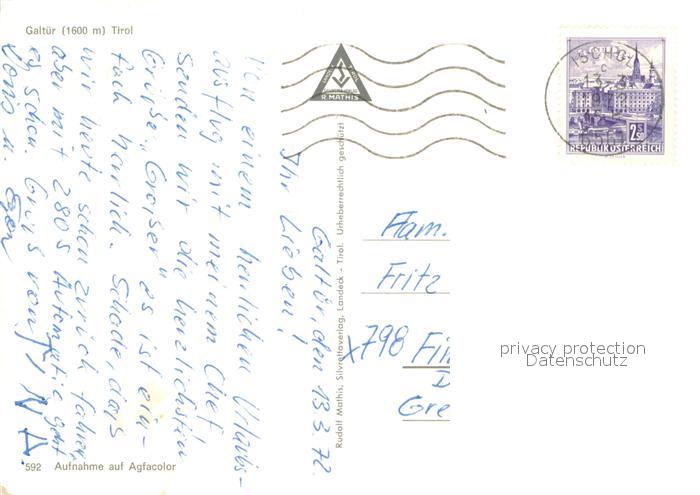 Galtür (1600 m) Tirol
R. MATHIS
ISCHGL
13.3.
2.50
REPUBLIK ÖSTERREICH
Galtür, den 13.3.72
Ihr Lieben!
Von einem herrlichen Urlaubs-
ausflug mit meinem Chef
senden wir die herzlichsten
Grüße. es ist ein-
fach herrlich. Schade, dass
wir heute schon zurück fahren
aber mit 280S Automatic geht
es schon. Gruß von
u.
Fam.
Fritz
X798
Gre
privacy protection
Datenschutz
Rudolf Mathis, Silvrettaverlag, Landeck - Tirol. Urheberrechtlich geschützt
592 Aufnahme auf Agfacolor